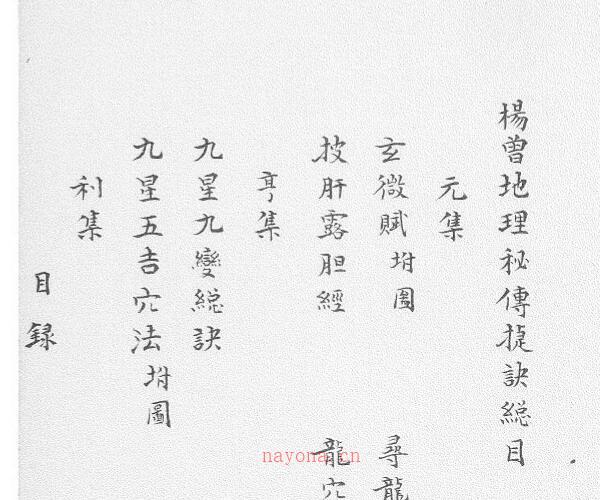 楊曾地理秘傳捷訣總目
元集
玄微賦 坿圖
尋龍
披肝露胆經
龍穴
亨集
九星九變總訣
九星五吉穴法 坿圖
利集
目錄
nayona.cn